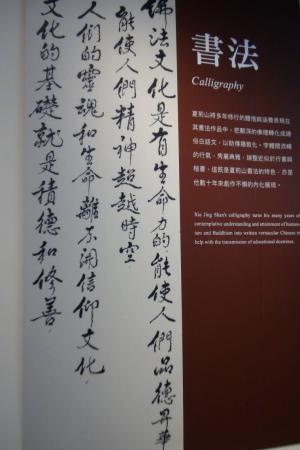 佛法文化是有生命力的能使人們品德昇華
能使人們精神超越時空
人們的靈魂和生命離不開信仰文化
文化的基礎就是積德和修善
書法
Calligraphy
夏荊山將多年修行的體悟與涵養表現在
其書法作品中，把艱深的佛理轉化成通
俗白話文，以助傳達教化。字體間流轉
的行氣，秀麗典雅，端整近似於行書與
楷書，這既是夏荊山書法的特色，亦是
他數十年來創作不懈的內化展現。
Xia Jing Shan's calligraphy turns his many years of
contemplative understanding and attainment of human-
ism and Buddhism into written vernacular Chinese to
help with the transmission of educational doctrines.